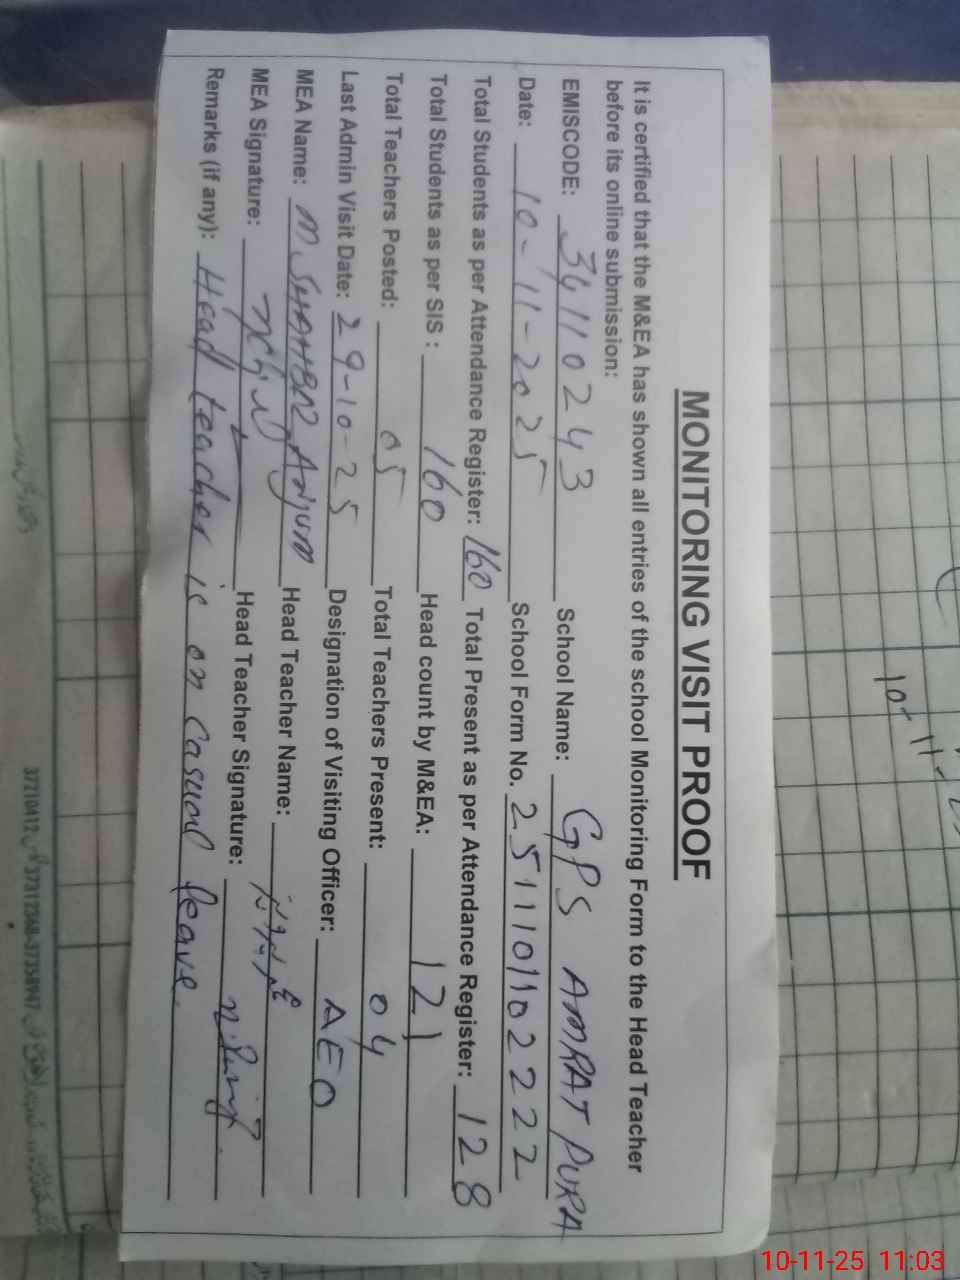 MONITORING VISIT PROOF
It is certified that the M&EA has shown all entries of the school Monitoring Form to the Head Teacher
before its online submission:
EMISCODE: 34110243 School Name: GPS AMRAT PURA
Date: 10-11-2025 School Form No. 251110110222 2
Total Students as per Attendance Register: 160 Total Present as per Attendance Register: 128
Total Students as per SIS : 160 Head count by M&EA: 121
Total Teachers Posted: 05 Total Teachers Present: 04
Last Admin Visit Date: 29-10-25 Designation of Visiting Officer: AEO
MEA Name: M. Anjum Head Teacher Name:
MEA Signature: Head Teacher Signature:
Remarks (if any): Head teacher is on casual leave.
10-11-
37210412
37312368-37358947
10-11-25 11:03